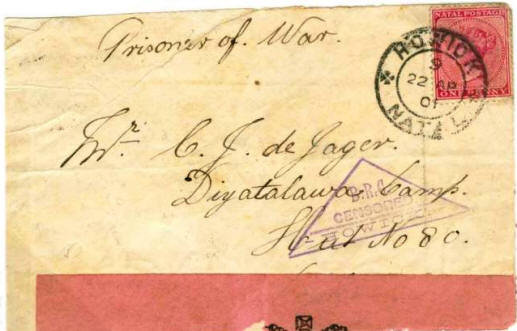 Prisoner of War.
NATAL POSTAGE
ONE PENNY
HOWICK
9
22 AP
01
NATAL
Mr. C. J. de Jager.
Diyatalawa Camp.
Hut No 80.
B.R.C.
CENSORED
HOWICK